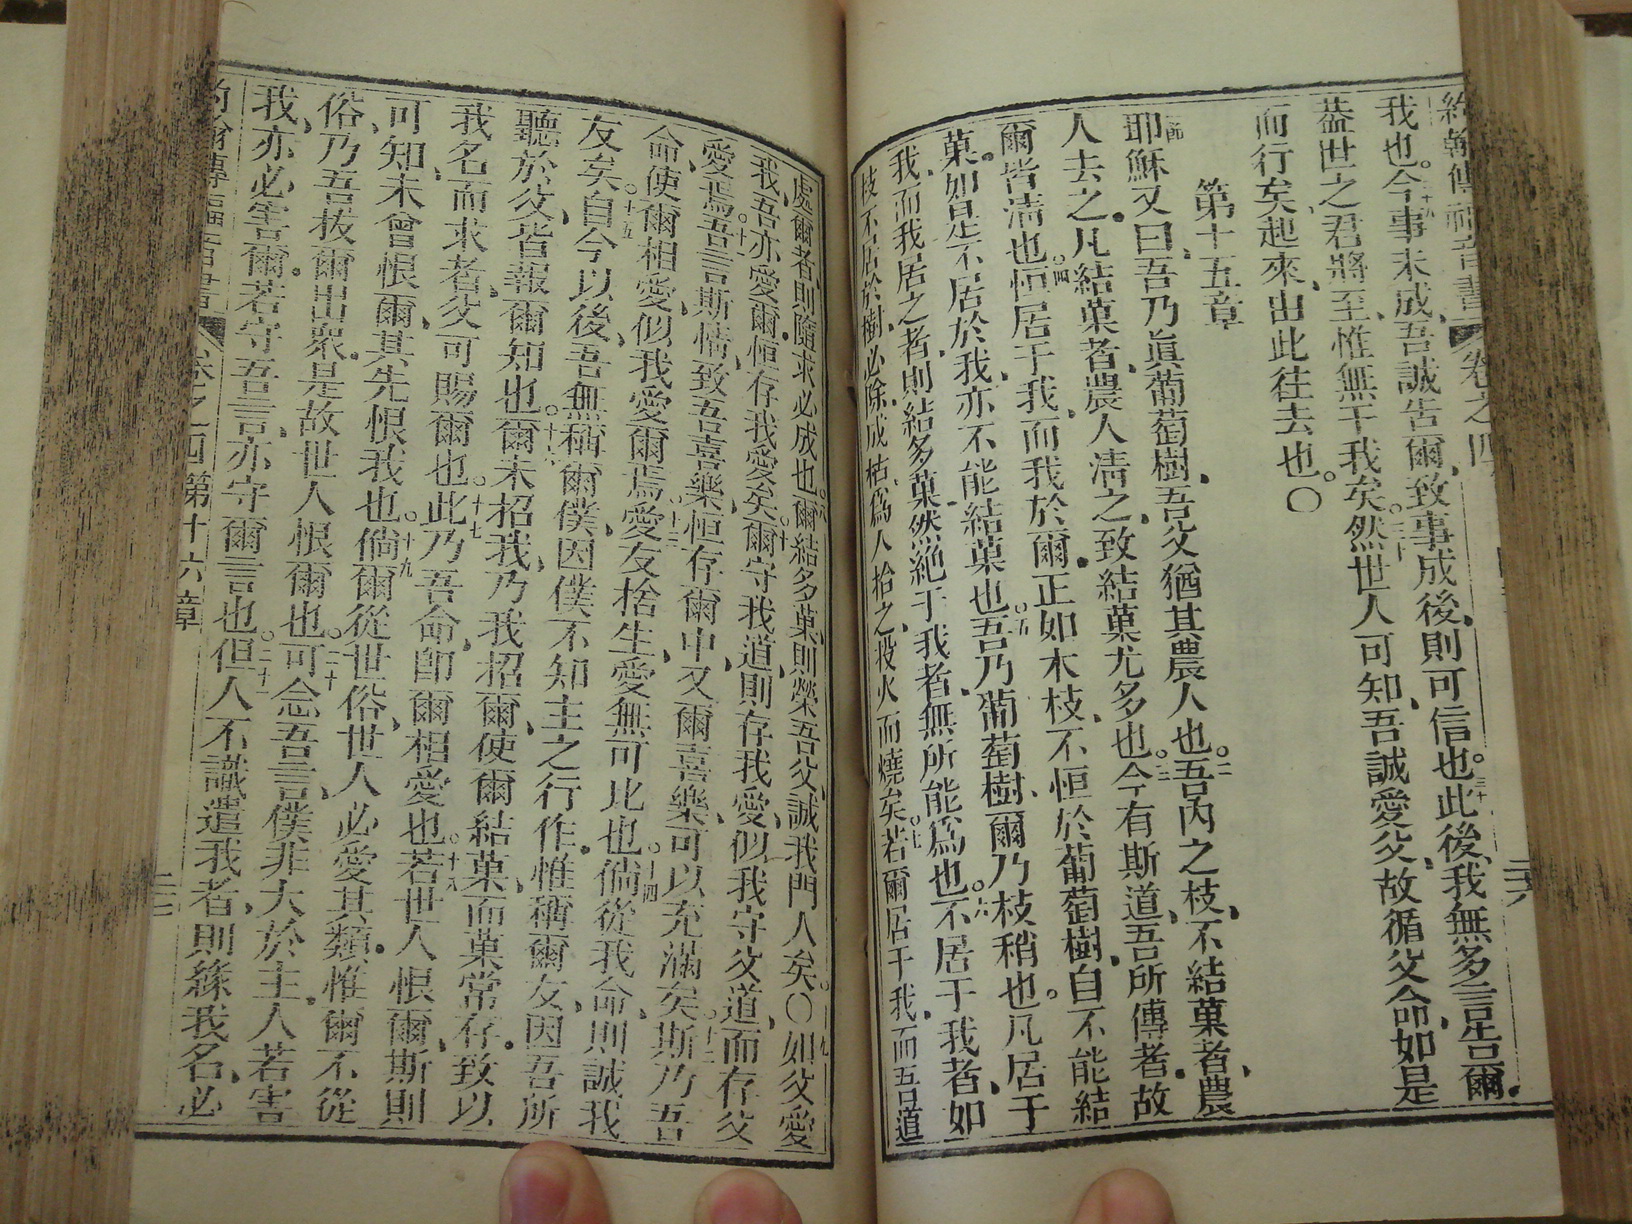 約翰傳福音書 卷之四
我也。十九今事未成、吾誠告爾、致事成後、則可信也。三十此後、我無多言告爾。
葢世之君將至、惟無干我矣。三一然世人可知、吾誠愛父、故循父命、如是
而行矣、起來、出此往去也。〇
第十五章
耶穌又曰、吾乃眞葡萄樹、吾父猶其農人也。二吾內之枝、不結菓者、農
人去之。凡結菓者、農人淸之、致結菓尤多也。三今有斯道、吾所傳者。故
爾皆淸也。四恒居于我、而我於爾。正如木枝、不恒於葡萄樹、自不能結
菓。如是不居於我、亦不能結菓也。五吾乃葡萄樹、爾乃枝稍也。凡居于
我、而我居之者、則結多菓、然絕于我者、無所能爲也。六不居于我者、如
枝不居於樹、必除、成枯、爲人拾之、投火而燒矣。七若爾居于我、而吾道
處爾者、則隨求必成也。八爾結多菓、則榮吾父、誠我門人矣。〇九如父愛
我、吾亦愛爾。恒存我愛矣。十爾守我道、則存我愛、似我守父道、而存父
愛焉。十一吾言斯情、致吾喜樂、恒存爾中、又爾喜樂、可以充滿矣。十二斯乃吾
命、使爾相愛、似我愛爾焉。十三愛友捨生、愛無可比也。十四倘從我命、則誠我
友矣。十五自今以後、吾無稱爾僕、因僕不知主之行作。惟稱爾友、因吾所
聽於父、皆報爾知也。十六爾未招我、乃我招爾、使爾結菓、而菓常存。致以
我名而求者、父可賜爾也。十七此乃吾命、卽爾相愛也。十八若世人恨爾、斯則
可知、未曾恨爾、其先恨我也。十九倘爾從世俗、世人必愛其類。惟爾不從
俗、乃吾拔爾出衆。是故世人恨爾也。二十可念吾言、僕非大於主人。若害
我、亦必害爾。若守吾言、亦守爾言也。二十一但人不識遣我者、則緣我名、必
約翰傳福音書 卷之四 第十六章